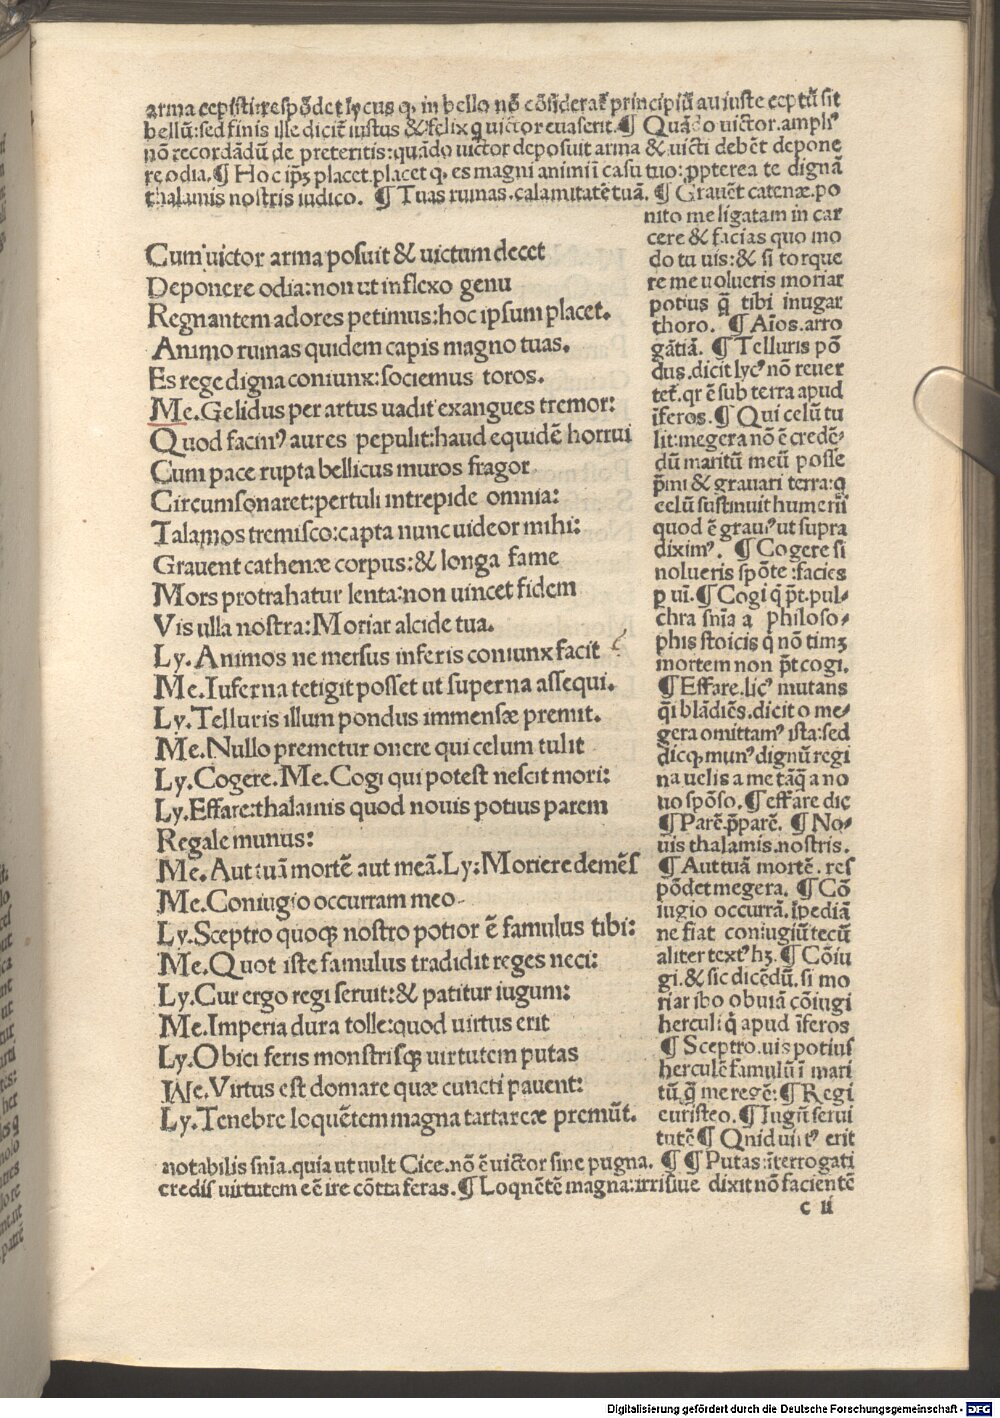 arma cepisti: respõdet lycus q, in bello nõ cõsiderat̃ principiũ an iuste ceptũ sit
bellũ: sed finis ille dicit̃ iustus & felix q̃ uictor euaserit. ¶ Quãdo uictor. ampliꝰ
nõ recordãdũ de preteritis: quãdo uictor deposuit arma & uicti debẽt depone
re odia. ¶ Hoc ip̃ꝫ placet. placet q, es magni animi ĩ casu tuo: ꝓpterea te dignã
thalamis nostris iudico. ¶ Tuas ruinas. calamitatẽ tuã. ¶ Grauẽt catenæ. po
nito me ligatam in car
cere & facias quo mo
do tu uis: & si torque
re me uolueris moriar
potius q̃ tibi iungar
thoro. ¶ Aĩos. arro
gãtiã. ¶ Telluris põ
dus. dicit lycꝰ nõ reuer
tet̃. qr ẽ sub terra apud
ĩferos. ¶ Qui celũ tu
lit: megera nõ ẽ credẽ-
dũ maritũ meũ posse
p̃mi & grauari terra: q̃
celũ sustinuit humeris
quod ẽ grauiꝰ ut supra
diximꝰ. ¶ Cogere si
nolueris spõte: facies
ꝑ uim. ¶ Cogi q̃ p̃t. pul-
chra sñia a philoso-
phis stoicis q̃ nõ timꝫ
mortem non p̃t cogi.
¶ Effare. licꝰ mutans
q̃i blãdiẽs. dicit o me-
gera omittamꝰ ista: sed
dic qꝫ munꝰ dignũ regi
na uelis a me tãq̃ a no
uo spõso. ¶ effare dic
¶ Parẽ. p̃parẽ. ¶ No-
uis thalamis. nostris.
¶ Aut tuã mortẽ. res
põdet megera. ¶ Cõ
iugio occurrã. ĩpediã
ne fiat coniugiũ tecũ
aliter textꝰ hꝫ. ¶ Cõiu
gi. & sic dicẽdũ. si mo
riar ibo obuiã cõiugi
herculi q̃ apud ĩferos
¶ Sceptro. uis potius
herculẽ famulũ ĩ mari
tũ q̃ me regẽ: ¶ Regi
euristeo. ¶ Iugũ serui
tutẽ ¶ Quid uirtꝰ erit
Cum uictor arma posuit & uictum decet
Deponere odia: non ut inflexo genu
Regnantem adores petimus: hoc ipsum placet.
Animo ruinas quidem capis magno tuas.
Es rege digna coniunx: sociemus toros.
Me. Gelidus per artus uadit exangues tremor:
Quod facinꝰ aures pepulit: haud equidẽ horrui
Cum pace rupta bellicus muros fragor
Circumsonaret: pertuli intrepide omnia:
Talamos tremisco: capta nunc uideor mihi:
Grauent cathenæ corpus: & longa fame
Mors protrahatur lenta: non uincet fidem
Vis ulla nostra: Moriar alcide tua.
Ly. Animos ne mersus inferis coniunx facit
Me. Inferna tetigit posset ut superna assequi.
Ly. Telluris illum pondus immensæ premit.
Me. Nullo premetur onere qui celum tulit
Ly. Cogere. Me. Cogi qui potest nescit mori:
Ly. Effare: thalamis quod nouis potius parem
Regale munus:
Me. Aut tuã mortẽ aut meã. Ly: Moriere demẽs
Me. Coniugio occurram meo
Ly. Sceptro quoqꝫ nostro potior ẽ famulus tibi:
Me. Quot iste famulus tradidit reges neci:
Ly. Cur ergo regi seruit: & patitur iugum:
Me. Imperia dura tolle: quod uirtus erit
Ly. Obici feris monstrisqꝫ uirtutem putas
Me. Virtus est domare quæ cuncti pauent:
Ly. Tenebre loquẽtem magna tartareæ premũt.
notabilis sñia. quia ut uult Cice. nõ ẽ uictor sine pugna. ¶ ¶ Putas: ĩterrogati
credis uirtutem eẽ ire cõtra feras. ¶ Loquẽtẽ magna: irrisiue dixit nõ facientẽ
c ii
Digitalisierung gefördert durch die Deutsche Forschungsgemeinschaft - DFG